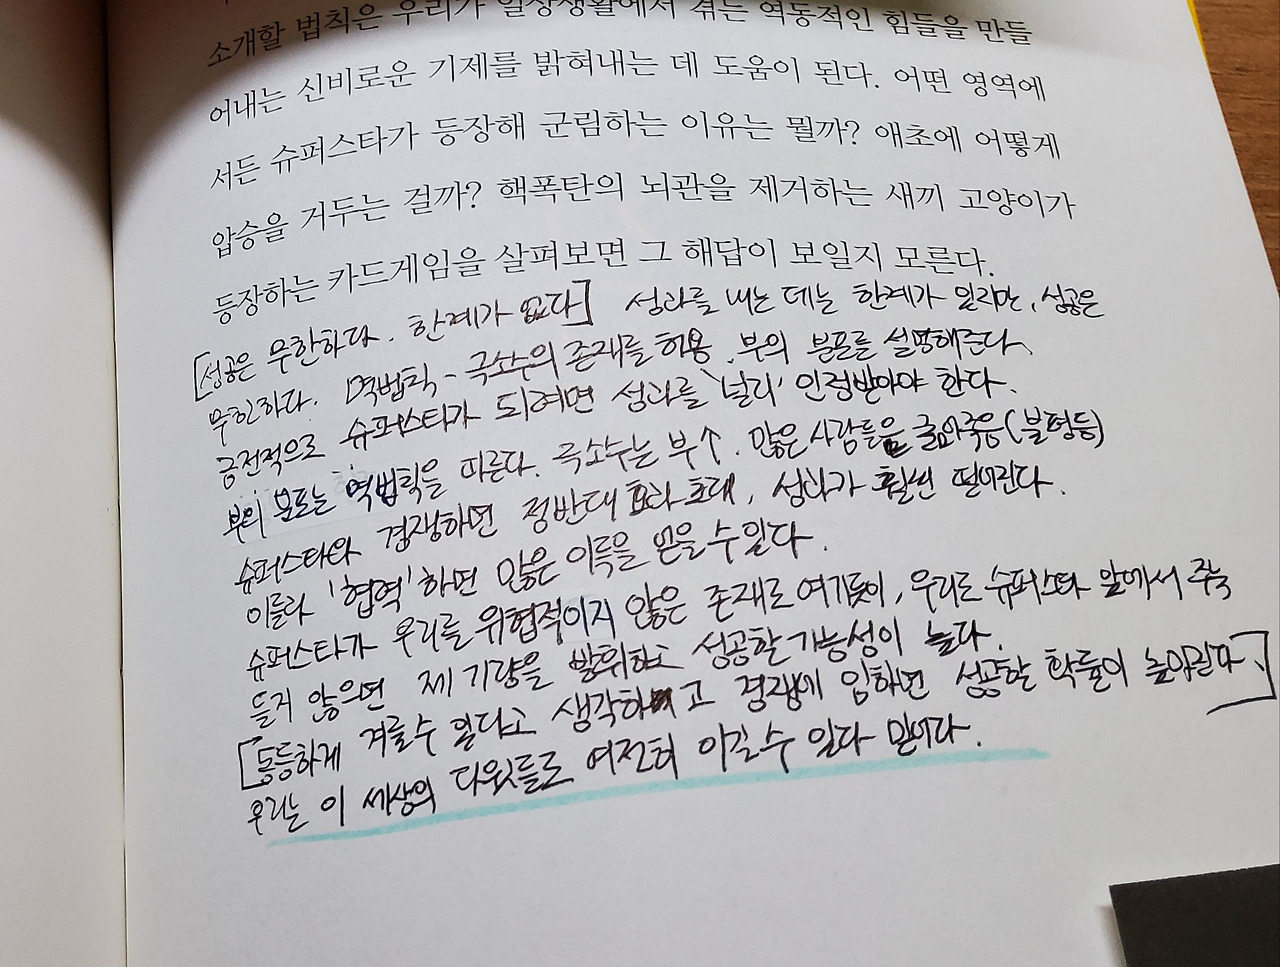 소개할 법칙은 우리가 일상생활에서 겪는 역동적인 힘들을 만들
어내는 신비로운 기제를 밝혀내는 데 도움이 된다. 어떤 영역에
서든 슈퍼스타가 등장해 군림하는 이유는 뭘까? 애초에 어떻게
압승을 거두는 걸까? 핵폭탄의 뇌관을 제거하는 새끼 고양이가
등장하는 카드게임을 살펴보면 그 해답이 보일지 모른다.
[성공은 무한하다. 한계가 없다] 성과를 내는 데는 한계가 있지만, 성공은
무한하다. 멱법칙 - 극소수의 존재를 허용. 부의 분포를 설명해준다.
금전적으로 슈퍼스타가 되려면 성과를 '널리' 인정받아야 한다.
부의 분포는 '멱법칙을 따른다. 극소수는 부↑. 많은 사람들은 굶어죽음(불평등)
슈퍼스타와 경쟁하면 정반대 효과 초래, 성과가 훨씬 떨어진다.
이들과 '협력'하면 많은 이득을 얻을 수 있다.
슈퍼스타가 우리를 위협적이지 않은 존재로 여기듯이, 우리도 슈퍼스타 앞에서 주눅
들지 않으면 제 기량을 발휘하고 성공할 가능성이 높다.
[동등하게 겨룰 수 있다고 생각하고 경쟁에 임하면 성공할 확률이 높아진다.]
우리는 이 세상의 다윗들도 여전히 이길 수 있다 믿는다.